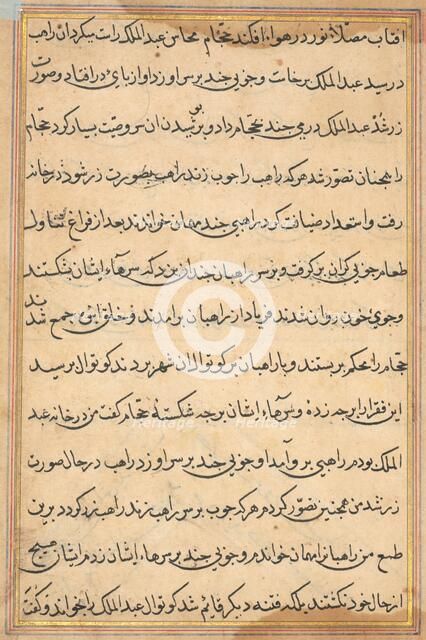 افتاب مصلا نور در هواء افکند حجام محاسن عبد الملک راست میکرد ان راهب
در رسید عبد الملک برخاست و چوبی چند بر سر او زد او از پای در افتاد و صورت
زر شد عبد الملک درمی چند بحجام داد و بر پوشیدن ان سر وصیت بسیار کرد حجام
را همچنان تصور شد هر که راهب را چوب زند راهب بصورت زر شود در خانه
رفت و استعداد ضیافت کرد راهبی چند مهمان خواند بعد از فراغ تناول
طعام چوبی کران بر کرفت و بر سر راهبان چندان بزد که سرهاء ایشان بشکستند
و جوی خون روان شدند فریاد از راهبان برامدند و خلق انبوه جمع شدند
حجام را محکم بربستند و با راهبان بر کوتوال ان شهر بردند کوتوال پرسید
این فقرا را بر چه زده و سرهاء ایشان بر چه شکسته حجام کفت من در خانه عبد
الملک بودم راهبی بر و آمد او چوبی چند بر سر او زد راهب در حال صورت
زر شد من همچنین تصور کردم هر که چوب بر سر راهب زند راهب زر کردد برین
طمع من راهبانرا مهمان خواندم و چوبی چند بر سرهاء ایشان زدم ایشان هیچ
از حال خود نکشتند بلکه فتنه دیکر قائم شد کوتوال عبد الملک را خواند و کفت
Heritage
Heritage